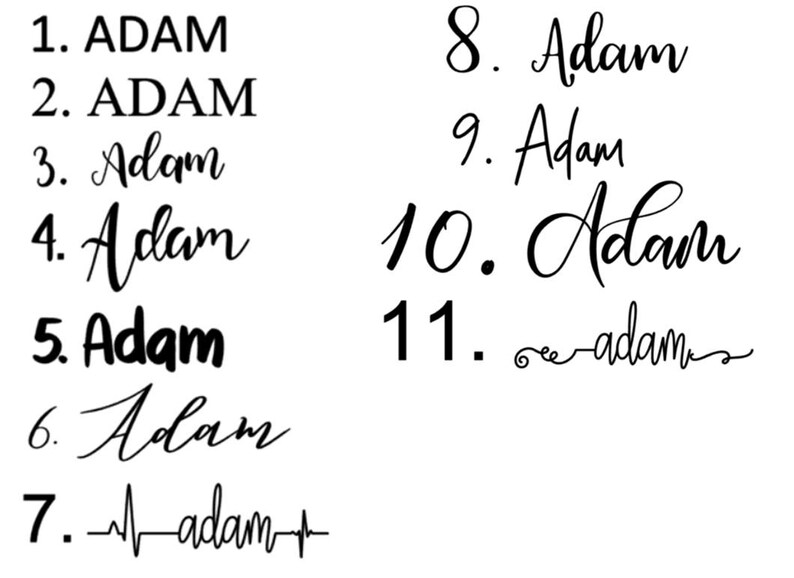 1. ADAM
2. ADAM
3. Adam
4. Adam
5. Adam
6. Adam
7. adam
8. Adam
9. Adam
10. Adam
11. adam